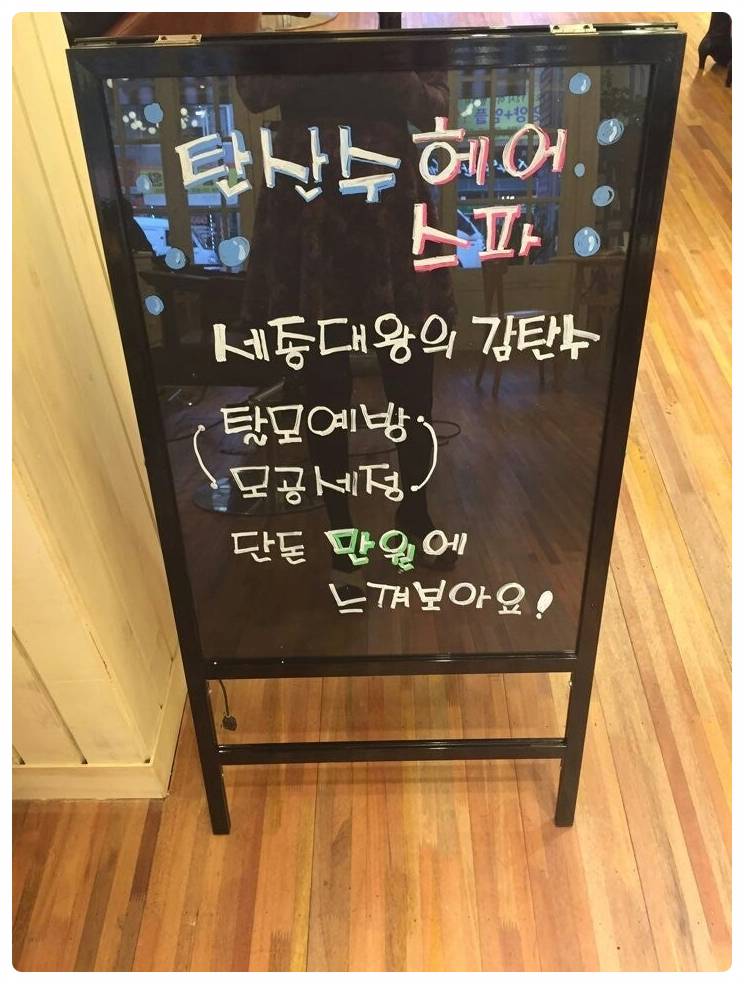 탄산수 헤어
스파
세종대왕의 감탄수
(탈모예방
모공세정)
단돈 만원에
느껴보아요!